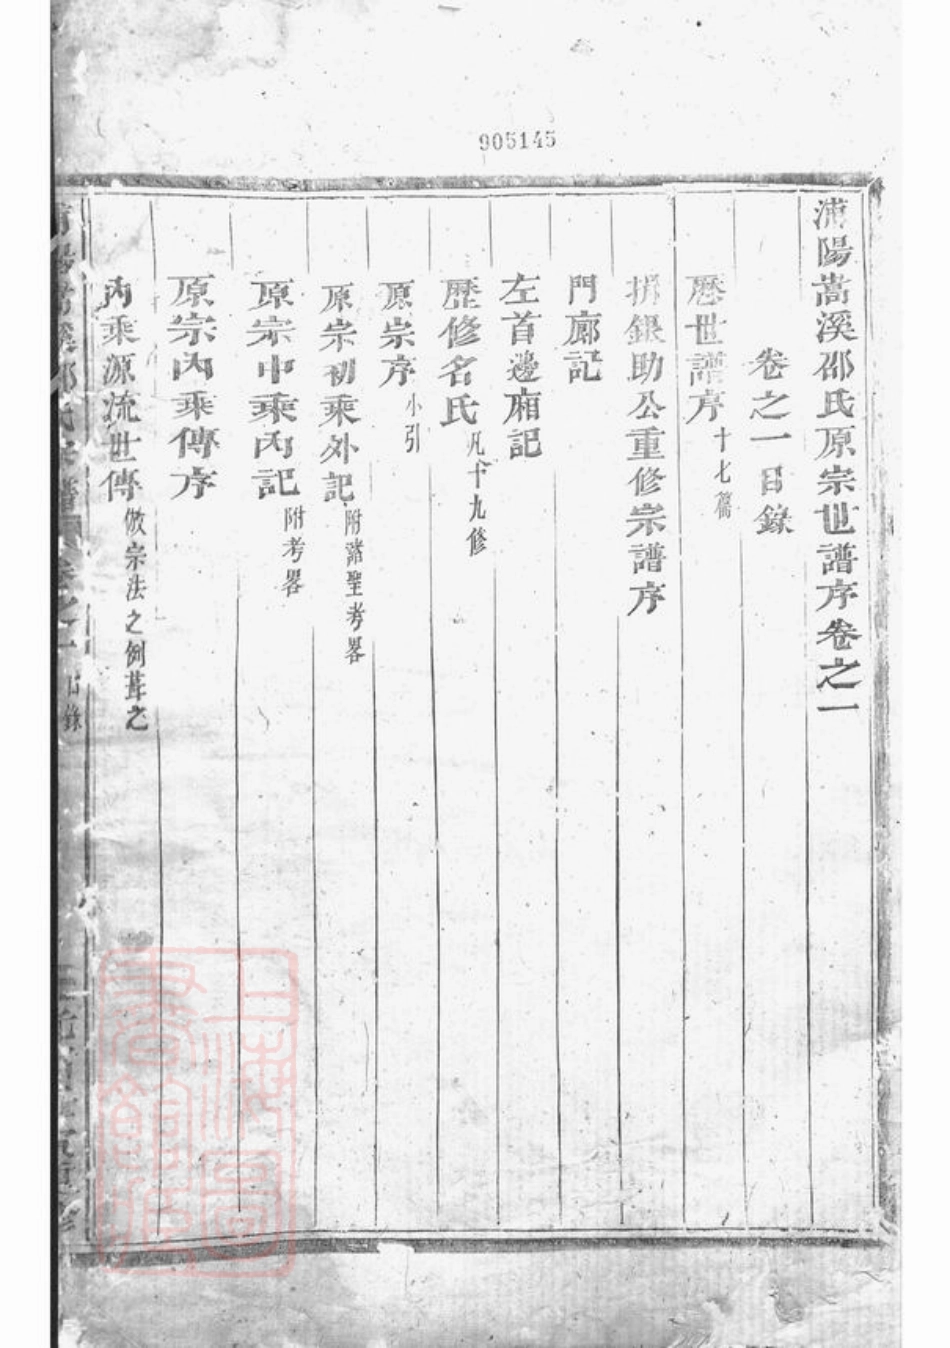 905145
浦陽嵩溪邵氏原宗世譜序卷之一
卷之一目錄
歷世譜序十七篇
捐銀助公重修宗譜序
門廊記
左首邊廂記
歷修名氏凡十九修
原宗序小引
原宗初乘外記附諸聖考畧
原宗中乘內記附考畧
原宗內乘傳序
內乘源流世傳倣宗法之例葺之
上海圖書館藏